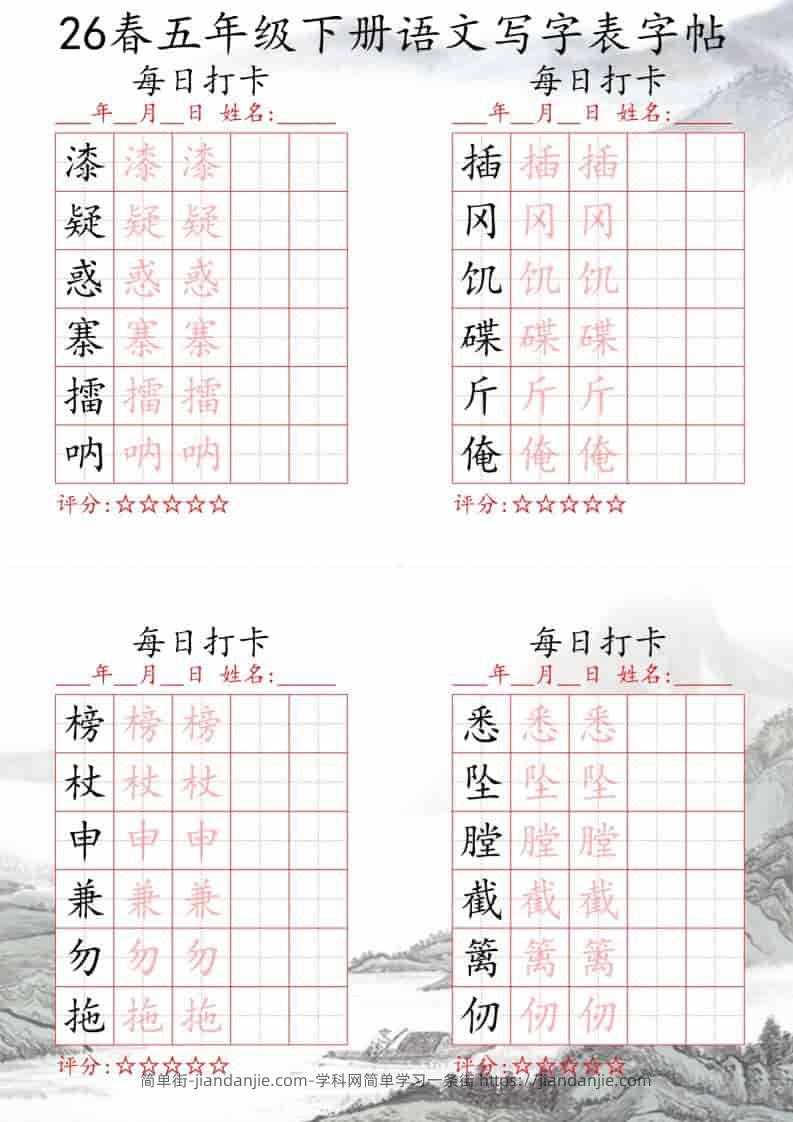 26春五年级下册语文写字表字帖
每日打卡
___年__月__日 姓名:_____
漆 漆 漆
疑 疑 疑
惑 惑 惑
寨 寨 寨
擂 擂 擂
呐 呐 呐
评分:☆☆☆☆☆
每日打卡
___年__月__日 姓名:_____
插 插 插
冈 冈 冈
饥 饥 饥
碟 碟 碟
斤 斤 斤
俺 俺 俺
评分:☆☆☆☆☆
每日打卡
___年__月__日 姓名:_____
榜 榜 榜
杖 杖 杖
申 申 申
兼 兼 兼
勿 勿 勿
拖 拖 拖
评分:☆☆☆☆☆
每日打卡
___年__月__日 姓名:_____
悉 悉 悉
坠 坠 坠
膛 膛 膛
截 截 截
篱 篱 篱
仞 仞 仞
评分:☆☆☆☆☆
简单街-jiandanjie.com-学科网简单学习一条街 https://jiandanjie.com